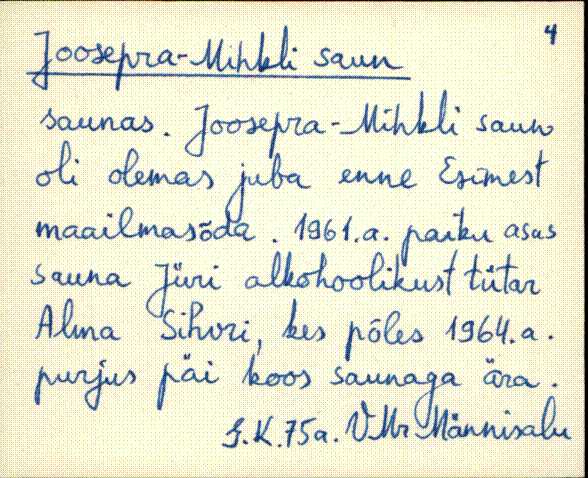 4
Joosepra-Mihkli saun
saunas. Joosepra-Mihkli saun
oli olemas juba enne Esimest
maailmasõda. 1961.a. paiku asus
sauna Jüri alkohoolikust tütar
Alma Sihvri, kes põles 1964.a.
purjus päi koos saunaga ära.
J.K. 75a. VMr Männisalu